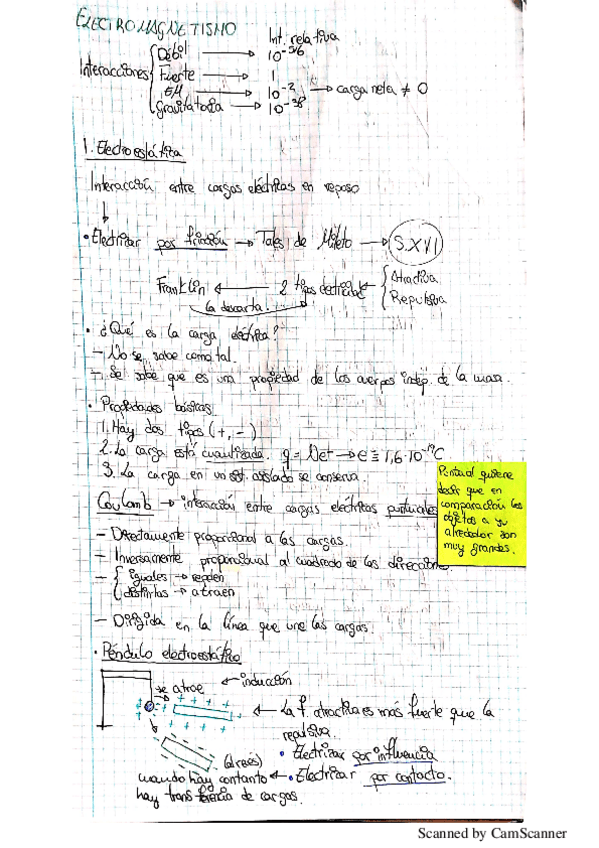 ELECTROMAGNETISMO
Int. relativa
Interacciones
Débil → 10
Fuerte → 1
EM → 10⁻² → carga neta ≠ 0
Gravitatoria → 10⁻³⁸
1. Electroestática
Interacción entre cargas eléctricas en reposo
• Electrizar por fricción → Tales de Mileto → S.XVI
Franklin ← 2 tipos electricidad ← Atractiva
Repulsiva
la descarta.
• ¿Qué es la carga eléctrica?
- No se sabe como tal.
- Se sabe que es una propiedad de los cuerpos indep. de la masa.
• Propiedades básicas
1. Hay dos tipos (+, -)
2. La carga está cuantizada. q = Ne → e ≡ 1,6·10⁻¹⁹C
3. La carga en un sist. aislado se conserva.
Coulomb → interacción entre cargas eléctricas puntuales
Puntual quiere
decir que en
comparación los
objetos a su
alrededor son
muy grandes.
- Directamente proporcional a las cargas.
- Inversamente proporcional al cuadrado de las
- iguales → repelen
distintas → atraen
- Dirigida en la línea que une las cargas.
• Péndulo electroestático
se atrae ← inducción
← La f. atractiva es más fuerte que la
repulsiva.
• Electrizar por influencia
(al revés)
cuando hay contanto ← • Electrizar por contacto.
hay transferencia de cargas.
Scanned by CamScanner